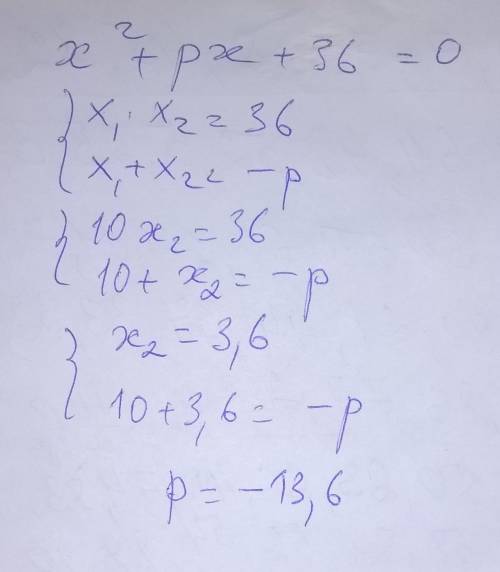 x² + px + 36 = 0
{ x₁ · x₂ = 36
x₁ + x₂ = -p
{ 10x₂ = 36
10 + x₂ = -p
} x₂ = 3,6
10 + 3,6 = -p
p = -13,6